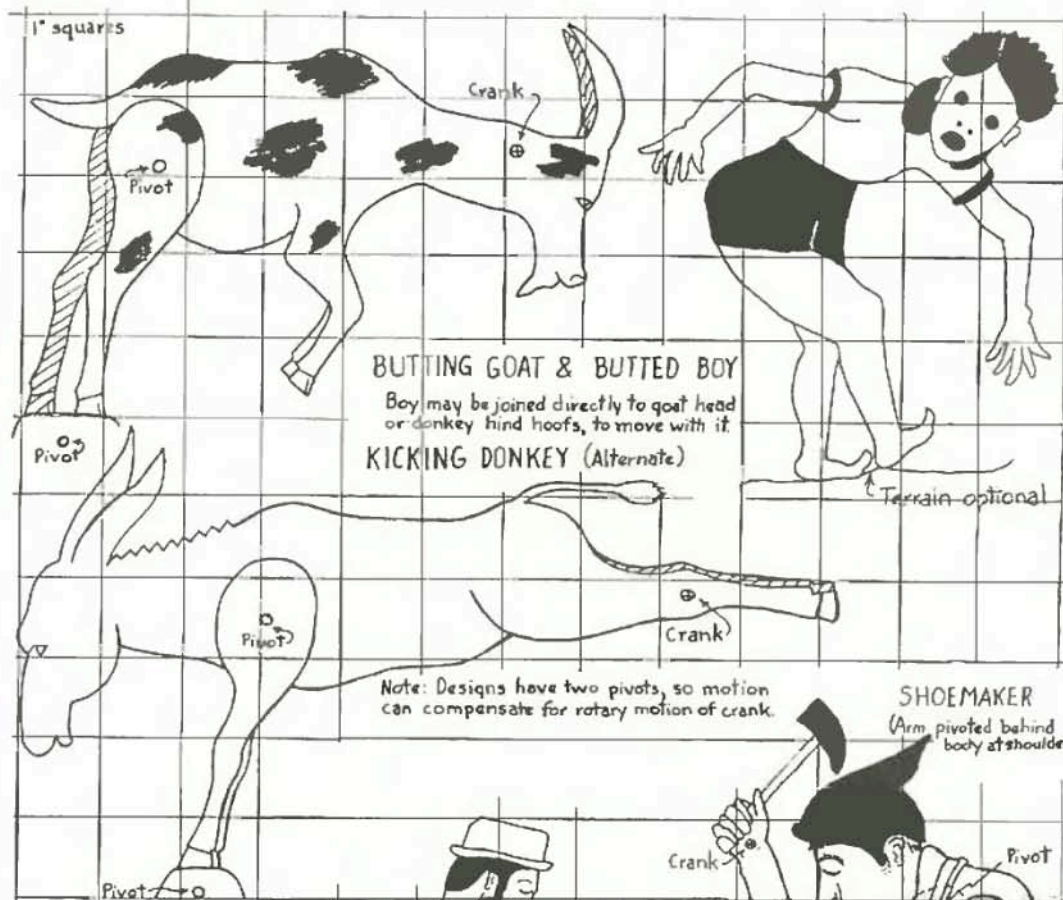 1" squares
Crank
Pivot
BUTTING GOAT & BUTTED BOY
Boy may be joined directly to goat head
or donkey hind hoofs, to move with it.
Pivot
KICKING DONKEY (Alternate)
Terrain optional
Pivot
Crank
Note: Designs have two pivots, so motion
can compensate for rotary motion of crank.
SHOEMAKER
(Arm pivoted behind
body at shoulde
Crank
Pivot
Pivot